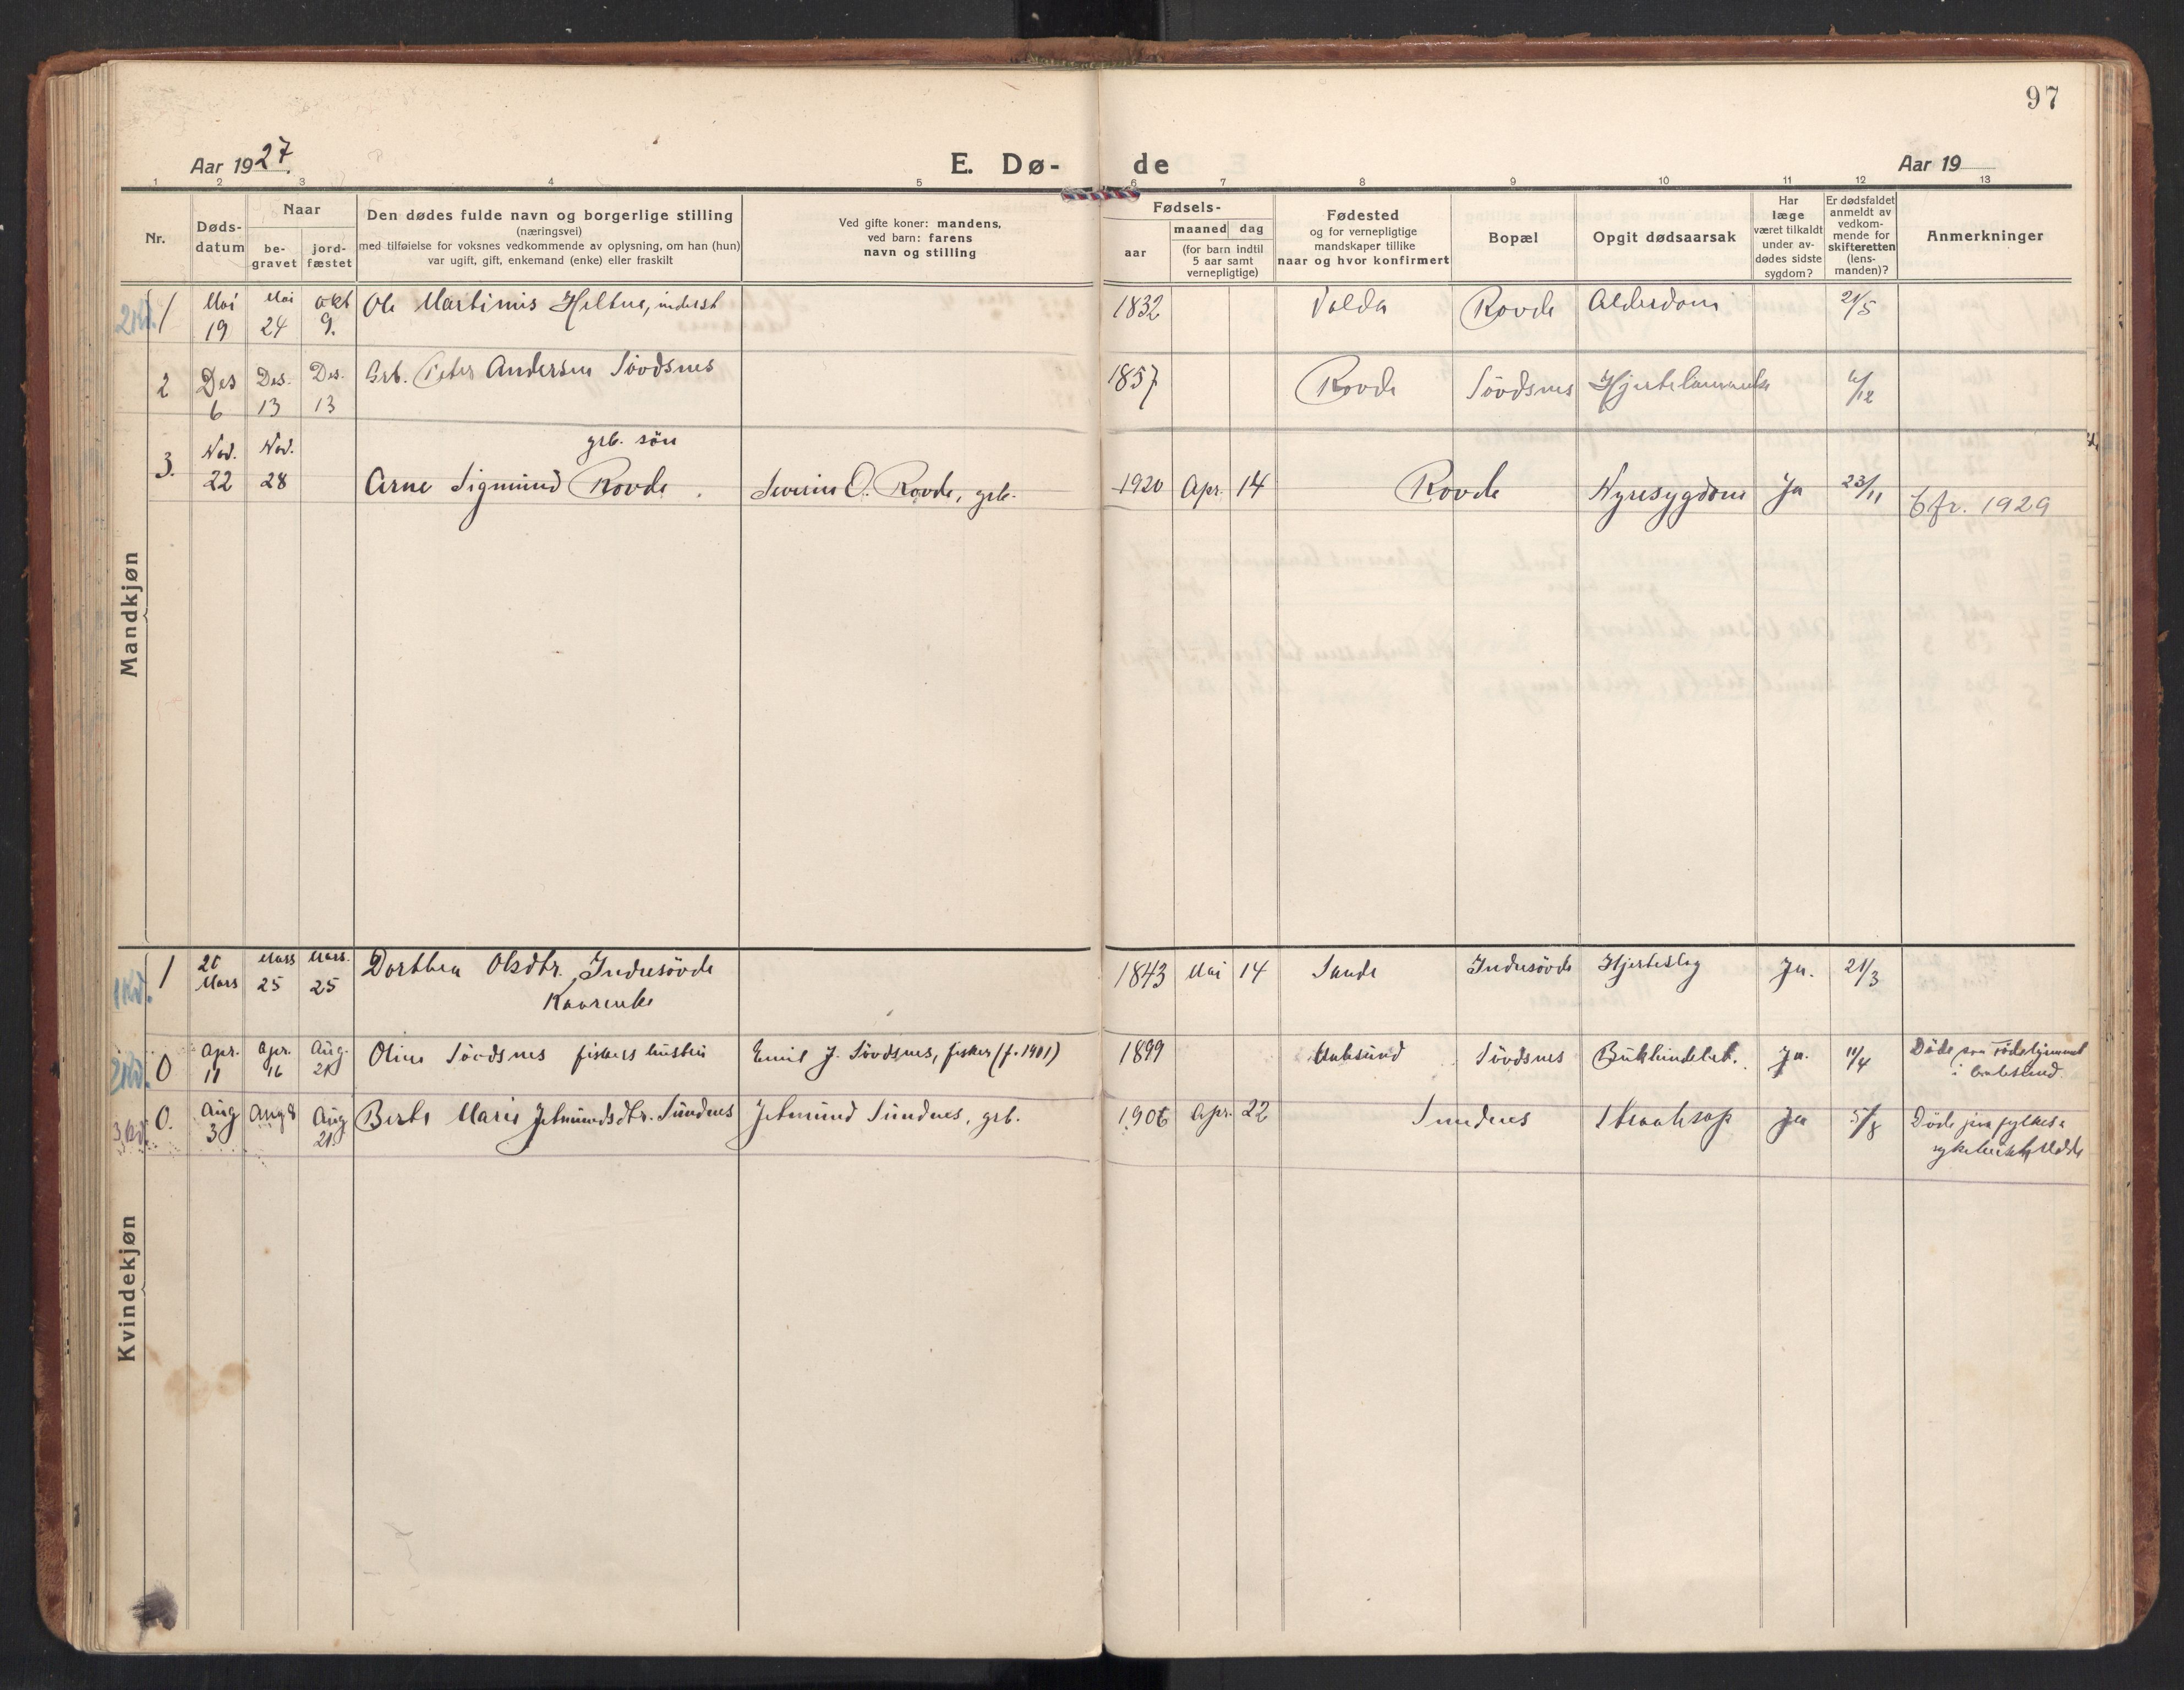 97
Aar 1927.
E. Dø-
de
Aar 19
1 2 3 4 5 6 7 8 9 10 11 12 13
Nr.
Døds-
datum
Naar
be-
gravet
jord-
fæstet
Den dødes fulde navn og borgerlige stilling
(næringsvei)
med tilføielse for voksnes vedkommende av oplysning, om han (hun)
var ugift, gift, enkemand (enke) eller fraskilt
Ved gifte koner: mandens,
ved barn: farens
navn og stilling
Fødsels-
aar
maaned dag
(for barn indtil
5 aar samt
vernepligtige)
Fødested
og for vernepligtige
mandskaper tillike
naar og hvor konfirmert
Bopæl
Opgit dødsaarsak
Har
læge
været tilkaldt
under av-
dødes sidste
sygdom?
Er dødsfaldet
anmeldt av
vedkom-
mende for
skifteretten
(lens-
manden)?
Anmerkninger
Mandkjøn
1 Mai 19 Mai 24 Okt 9. Ole Martinus Heltne, inderst 1832 Volda Rovde Alderdom 21/5
2 Des 6 Des. 13 Des. 13 Grb. Peter Andersen Sövdsnes 1857 Rovde Sövdsnes Hjertelammelse 6/12
3. Nov. 22 Nov. 28 grb. sön
Arne Sigmund Rovde. Severin O. Rovde, grb. 1920 Apr. 14 Rovde Nyresygdom Ja 23/11 Cfr. 1929
Kvindekjøn
1 20 Mars Mars 25 Mars. 25 Dorthea Olsdtr. Indresövde
Kaarenke 1843 Mai 14 Sande Indresövde Hjerteslag Ja. 21/3
0 Apr. 11 Apr. 16 Aug. 21 Oline Sövdsnes fiskers hustru Emil J. Sövdsnes, fisker (f. 1901) 1899 Sövdsnes Ja. 11/4 Döde paa
i
0. Aug 3 Aug 8 Aug 21. Berte Marie Jetmundsdtr. Sundnes Jetmund Sundnes, grb. 1906 Apr. 22 Sundnes Ja 5/8 Döde paa fylkes-